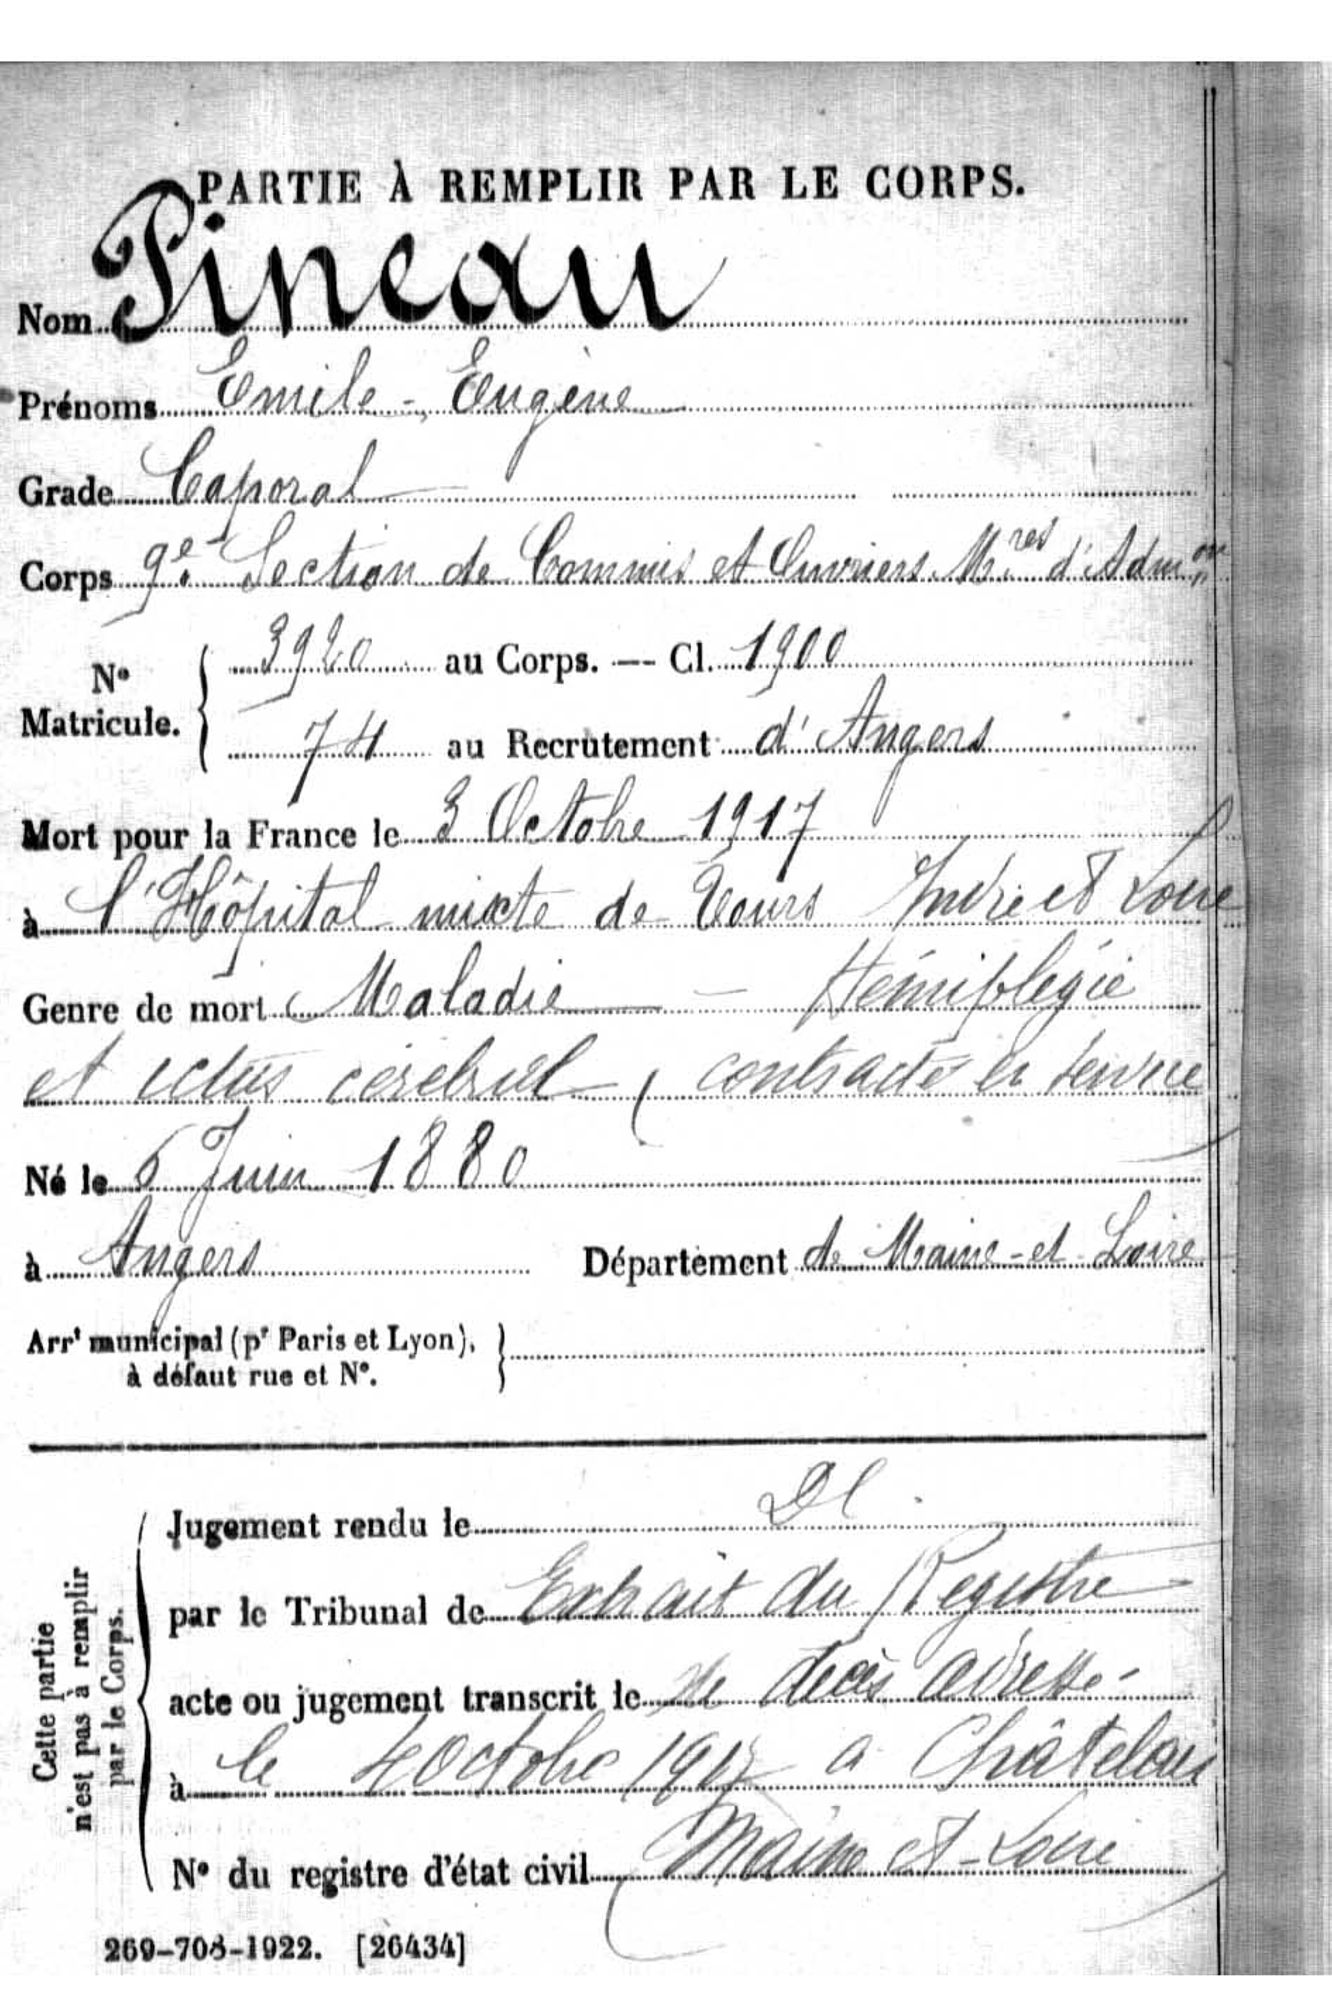 PARTIE À REMPLIR PAR LE CORPS.
Nom Pineau
Prénoms Emile - Eugène
Grade Caporal
Corps 9e Section de Commis et Ouvriers Mres d'Admon
No 3920 au Corps. — Cl. 1900
Matricule. 74 au Recrutement d'Angers
Mort pour la France le 3 Octobre 1917
à l'Hôpital mixte de Tours Indre et Loire
Genre de mort Maladie - Hémiplégie
et ictus cérébral (contracté en service)
Né le 6 Juin 1880
à Angers Département de Maine-et-Loire
Arrt municipal (pr Paris et Lyon),
à défaut rue et No.
Cette partie
n'est pas à remplir
par le Corps.
Jugement rendu le
par le Tribunal de Extrait du Registre
acte ou jugement transcrit le de décès adressé
à le 4 Octobre 1917 à Châtelais
No du registre d'état civil (Maine et Loire)
269-708-1922. [26434]